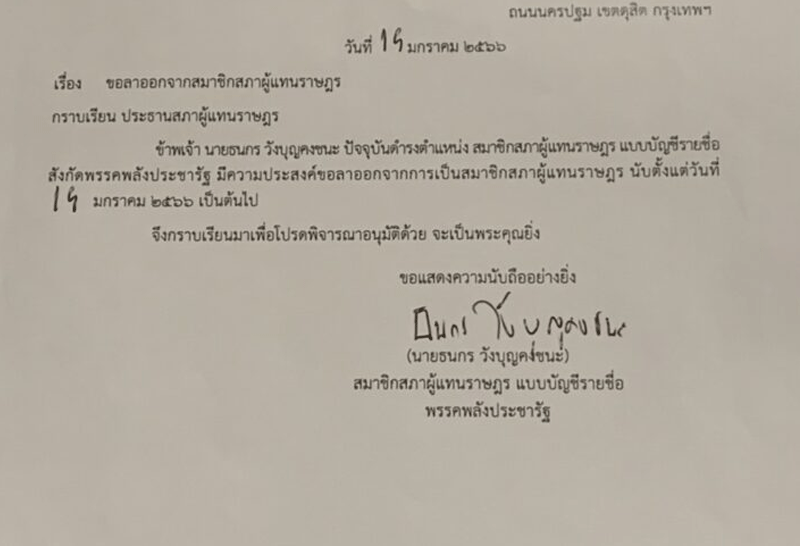 ถนนนครปฐม เขตดุสิต กรุงเทพฯ
วันที่ 19 มกราคม ๒๕๖๖
เรื่อง ขอลาออกจากสมาชิกสภาผู้แทนราษฎร
กราบเรียน ประธานสภาผู้แทนราษฎร
ข้าพเจ้า นายธนกร วังบุญคงชนะ ปัจจุบันดำรงตำแหน่ง สมาชิกสภาผู้แทนราษฎร แบบบัญชีรายชื่อ
สังกัดพรรคพลังประชารัฐ มีความประสงค์ขอลาออกจากการเป็นสมาชิกสภาผู้แทนราษฎร นับตั้งแต่วันที่
19 มกราคม ๒๕๖๖ เป็นต้นไป
จึงกราบเรียนมาเพื่อโปรดพิจารณาอนุมัติด้วย จะเป็นพระคุณยิ่ง
ขอแสดงความนับถืออย่างยิ่ง
ธนกร วังบุญคงชนะ
(นายธนกร วังบุญคงชนะ)
สมาชิกสภาผู้แทนราษฎร แบบบัญชีรายชื่อ
พรรคพลังประชารัฐ